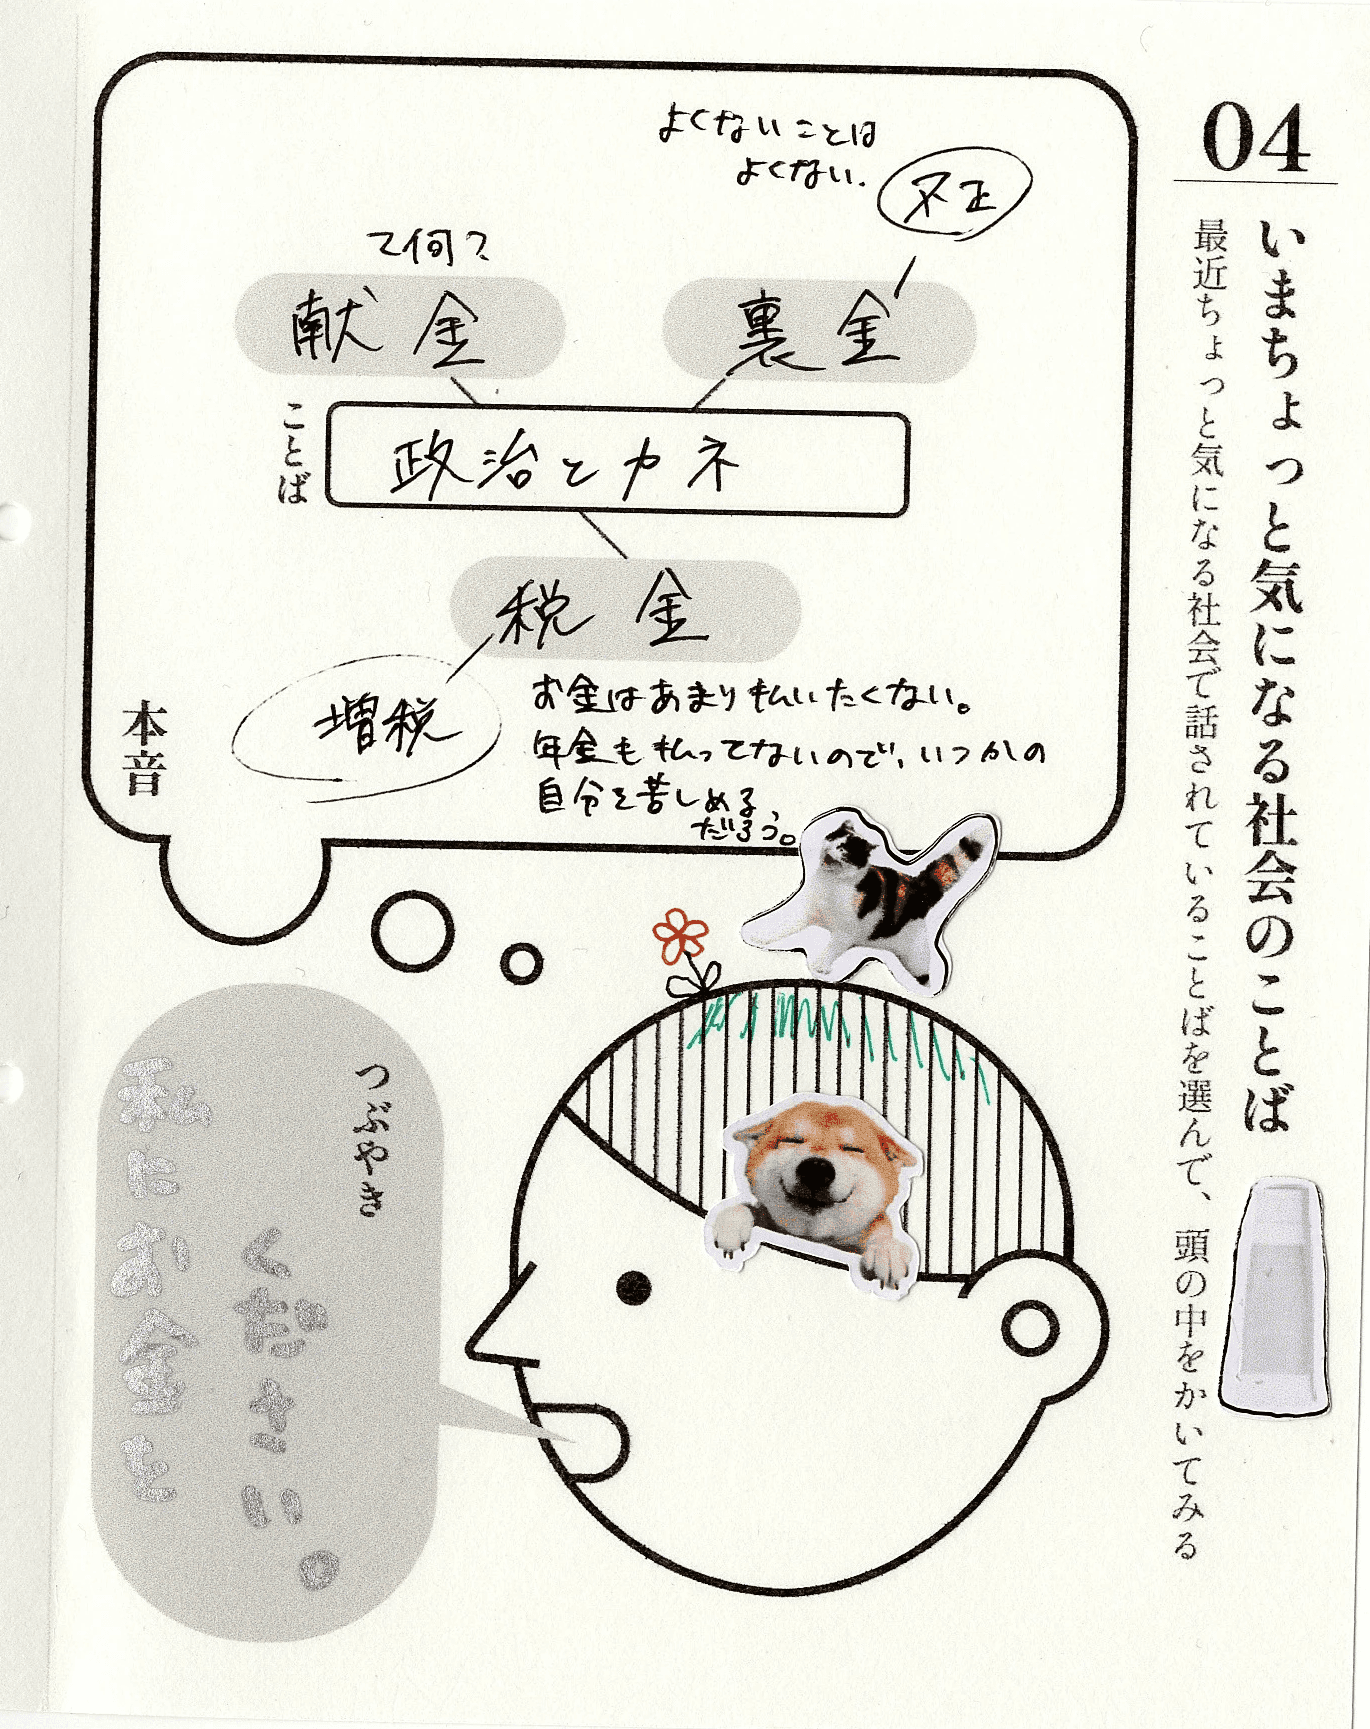 04
いまちょっと気になる社会のことば
最近ちょっと気になる社会で話されていることばを選んで、頭の中をかいてみる
よくないことは
よくない.
不正
て何？
献金
裏金
ことば
政治とカネ
税金
増税
お金はあまり払いたくない。
年金も払ってないので、いつかの
自分を苦しめる、
だろう。
本音
つぶやき
私にお金を
ください。